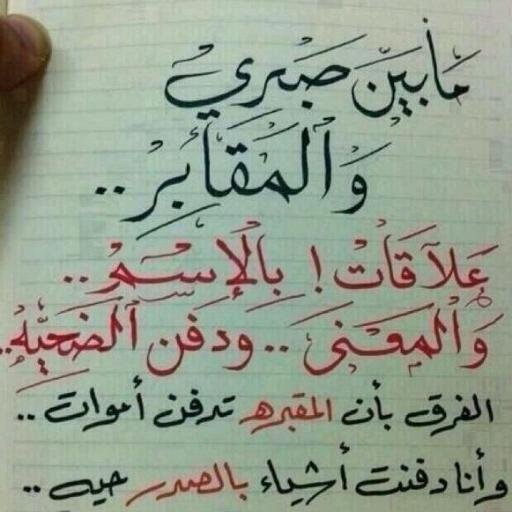 مَابَيّن صَبري
وَالمَقَابِرْ ..
عَلاَقَاتْ ! بِالإِسْمْ ..
وَالمَعْنَى .. ودَفَن الضَحِيّهْ ..
الفرق بأن المقبره تدفن أموات ..
وأنا دفنت أشياء بالصدر حيه ..